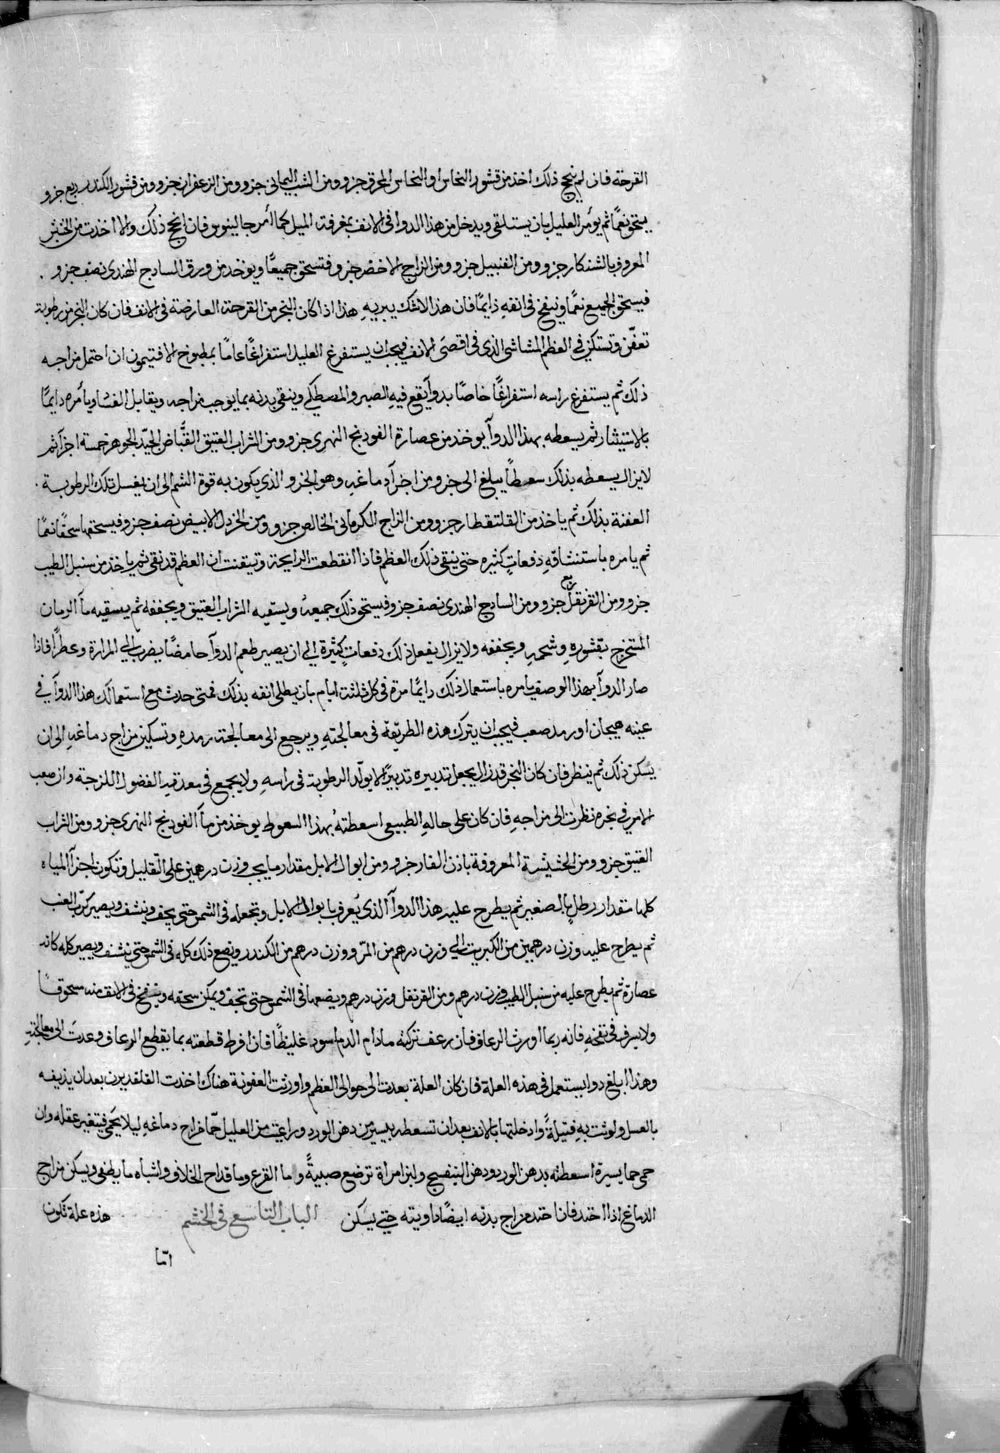 القرحة فان لم ينجح ذلك اخذ من قشور النحاس او النحاس المحرق جزو ومن الشب اليماني جزو ومن الزعفران جزو ومن قشور الكندر ربع جزو
يسحق نعمًا ثم يومر العليل بان يستلقي ويدخل من هذا الدوا في الانف بمغرفة الميل كما أمر جالينوس فان انجح ذلك والا اخذت من
المعروف بالشنكار جزو ومن القنبيل جزو ومن الزاج الاخضر جزو فتسحق جميعًا ويوخذ من ورق السادج الهندي نصف جزو
فيسحق الجميع نعمًا وينفخ في انفه دايمًا فان هذا لاشك يبريه هذا اذا كان النجر من القرحة العارضة في الانف فان كان النجر من رطوبة
تعفن وتستكن في العظم المشاشي الذي في اقصى الانف فيجب ان يستفرغ العليل استفراغًا عامًا بمطبوخ الافتيمون ان احتمل مزاجه
ذلك ثم يستفرغ راسه استفراغًا خاصًا بدوآ يقع فيه الصبر والمصطكي وينقى بدنه بما يوجب مزاجه ويقابل ويأمره دايمًا
بالاستنثار ثم يسعطه بهذا الدوآ يوخذ من عصارة الفودنج النهري جزو ومن الشراب العتيق القباض الجيد الجوهر خمسة اجزآ ثم
لا يزال يسعطه بذلك سعطًا يبلغ الى جزو من اجزآ دماغه وهو الجزو الذي يكون به قوة الشم الى ان يغسل تلك الرطوبة
العفنة بذلك ثم ياخذ من القلقطار جزو ومن الزاج الكرماني الخالص جزو ومن الخردل الابيض نصف جزو فيسحقها سحقًا نعمًا
ثم يامره باستنشاقه دفعات كثيره حتى ينقى ذلك العظم فاذا انقطعت الرايحة وتيقنت ان العظم قد نقى ثم ياخذ من سنبل الطيب
جزو ومن القرنفل ربع جزو ومن السادج الهندي نصف جزو فيسحق ذلك جميعه ويسقيه الشراب العتيق ويجففه ثم يسقيه مآ الرمان
المستخرج بقشوره وشحمه ويجففه ولا يزال يفعل ذلك دفعات كثيرة الى ان يصير طعم الدوآ حامضًا يضرب الى المرارة وعطرًا فاذا
صار الدوآ بهذا الوصف يامره باستعمال ذلك دايمًا مرة في كل ثلثة ايام بان يطلى انفه بذلك فمتى حدث مع استعمالك هذا الدوآ في
عينه هيجان او رمد صعب فيجب ان يترك هذه الطريقة في معالجته ويرجع الى معالجة رمده وتسكين مزاج دماغه الى ان
يسكن ذلك ثم ينظر فان كان النجر قد زال يجعل تدبيره تدبيرًا لا يولد الرطوبة في راسه ولا يجمع في معدته الفضول اللزجة وان صعب
الامر في نجره نظرت الى مزاجه فان كان على حاله الطبيعي اسعطته بهذا السعوط يوخذ من مآ الفودنج النهري جزو ومن الشراب
العتيق جزو ومن الحشيشة المعروفة باذن الفار جزو ومن ابوال الابل مقدار ما يجب وزن درهمين على القليل وتكون اجزآ المياه
كلها مقدار رطل بالصغير ثم يطرح عليه هذا الدوآ الذي يعرف بابوال الابل وتجعله في الشمس حتى يجف وينشف ويصير كرب العنب
ثم يطرح عليه وزن درهمين من الكبريت الى وزن درهم من المر ووزن درهم من الكندر ويضع ذلك كله في الشمس حتى ينشف ويصير كله كانه
عصارة ثم يطرح عليه من سنبل الطيب وزن درهم ومن القرنفل وزن درهم ويضعها في الشمس حتى تجف ويمكن سحقه وينفخ في الانف منه مسحوقًا
ولا يسرف في نفخه فانه ربما اورث الرعاف فان رعف تركته مادام الدم اسود غليظًا فان افرط قطعته بما يقطع الرعاف وعدت الى معالجته
وهذا ابلغ دوا يستعمل في هذه العلة فان كان العلة بعدت الى حوالى العظم واورثت العفونة هناك اخذت القلقديس بعد ان يذيفه
بالعسل ولوثت به فتيلةً وادخلتها بالانف بعد ان تسعطه بيسير من دهن الورد وراعيت من العليل حما مزاج دماغه ليلا يحمى فيتغير عقله وان
حمى حما يسيرة اسعطته بدهن الورد ودهن البنفسج ولبن امراة ترضع صبيةً وما القرع وما قداح الخلاف واشباه ما يطفى ويسكن مزاج
الدماغ اذا احتد فان احتد مزاج بدنه ايضًا داويته حتى يسكن الباب التاسع في الخشم هذه علة تكون
اما